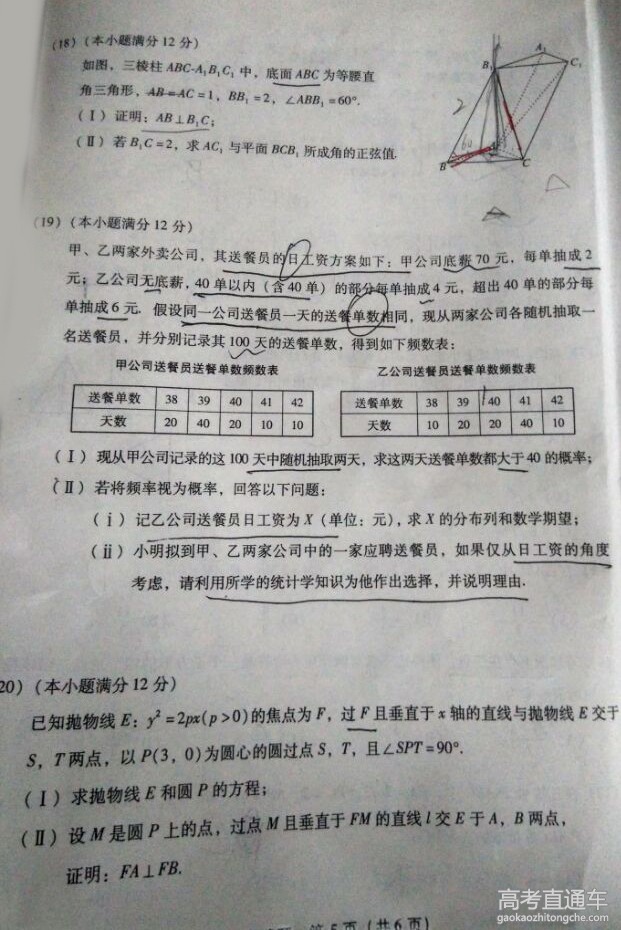 (18)(本小题满分12分)
如图,三棱柱ABC-A₁B₁C₁中,底面ABC为等腰直
角三角形,AB=AC=1,BB₁=2,∠ABB₁=60°.
(Ⅰ)证明:AB⊥B₁C;
(Ⅱ)若B₁C=2,求AC₁与平面BCB₁所成角的正弦值.
A₁
B₁
C₁
2
60
B
C
(19)(本小题满分12分)
甲、乙两家外卖公司,其送餐员的日工资方案如下:甲公司底薪70元,每单抽成2
元;乙公司无底薪,40单以内(含40单)的部分每单抽成4元,超出40单的部分每
单抽成6元.假设同一公司送餐员一天的送餐单数相同,现从两家公司各随机抽取一
名送餐员,并分别记录其100天的送餐单数,得到如下频数表:
甲公司送餐员送餐单数频数表 乙公司送餐员送餐单数频数表
送餐单数 38 39 40 41 42 送餐单数 38 39 40 41 42
天数 20 40 20 10 10 天数 10 20 20 40 10
(Ⅰ)现从甲公司记录的这100天中随机抽取两天,求这两天送餐单数都大于40的概率;
(Ⅱ)若将频率视为概率,回答以下问题:
(ⅰ)记乙公司送餐员日工资为X(单位:元),求X的分布列和数学期望;
(ⅱ)小明拟到甲、乙两家公司中的一家应聘送餐员,如果仅从日工资的角度
考虑,请利用所学的统计学知识为他作出选择,并说明理由.
20)(本小题满分12分)
已知抛物线E:y²=2px(p>0)的焦点为F,过F且垂直于x轴的直线与抛物线E交于
S,T两点,以P(3,0)为圆心的圆过点S,T,且∠SPT=90°.
(Ⅰ)求抛物线E和圆P的方程;
(Ⅱ)设M是圆P上的点,过点M且垂直于FM的直线l交E于A,B两点,
证明:FA⊥FB.
第5页(共6页)
高考直通车
gaokaozhitongche.com